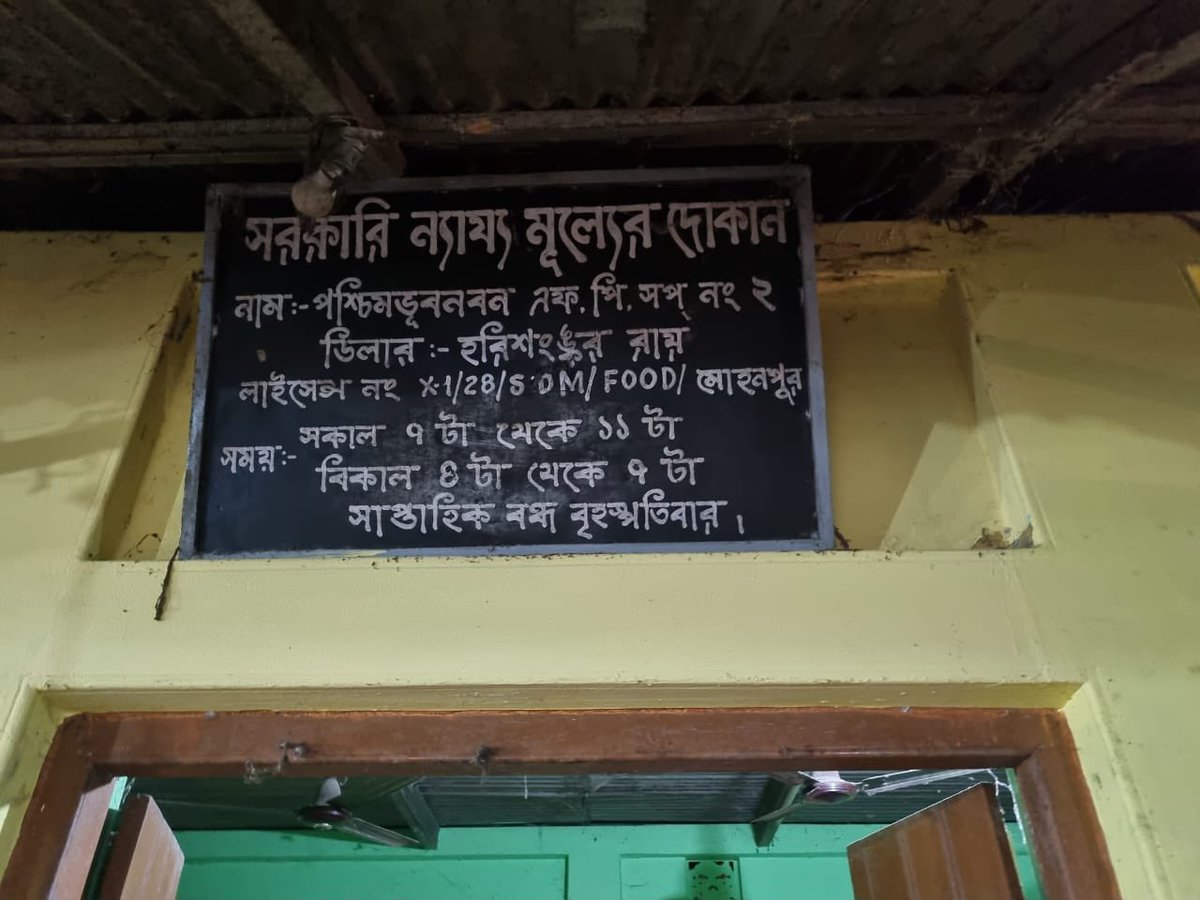 সরকারি ন্যায্য মূল্যের দোকান
নাম:- পশ্চিমভূবনবন এফ. পি. সপ্ নং ২
ডিলার :- হরিশংঙ্কর রায়
লাইসেন্স নং X-1/28/SDM/FOOD/ মোহনপুর
সময়:- সকাল ৭ টা থেকে ১১ টা
বিকাল ৪ টা থেকে ৭ টা
সাপ্তাহিক বন্ধ বৃহস্পতিবার।